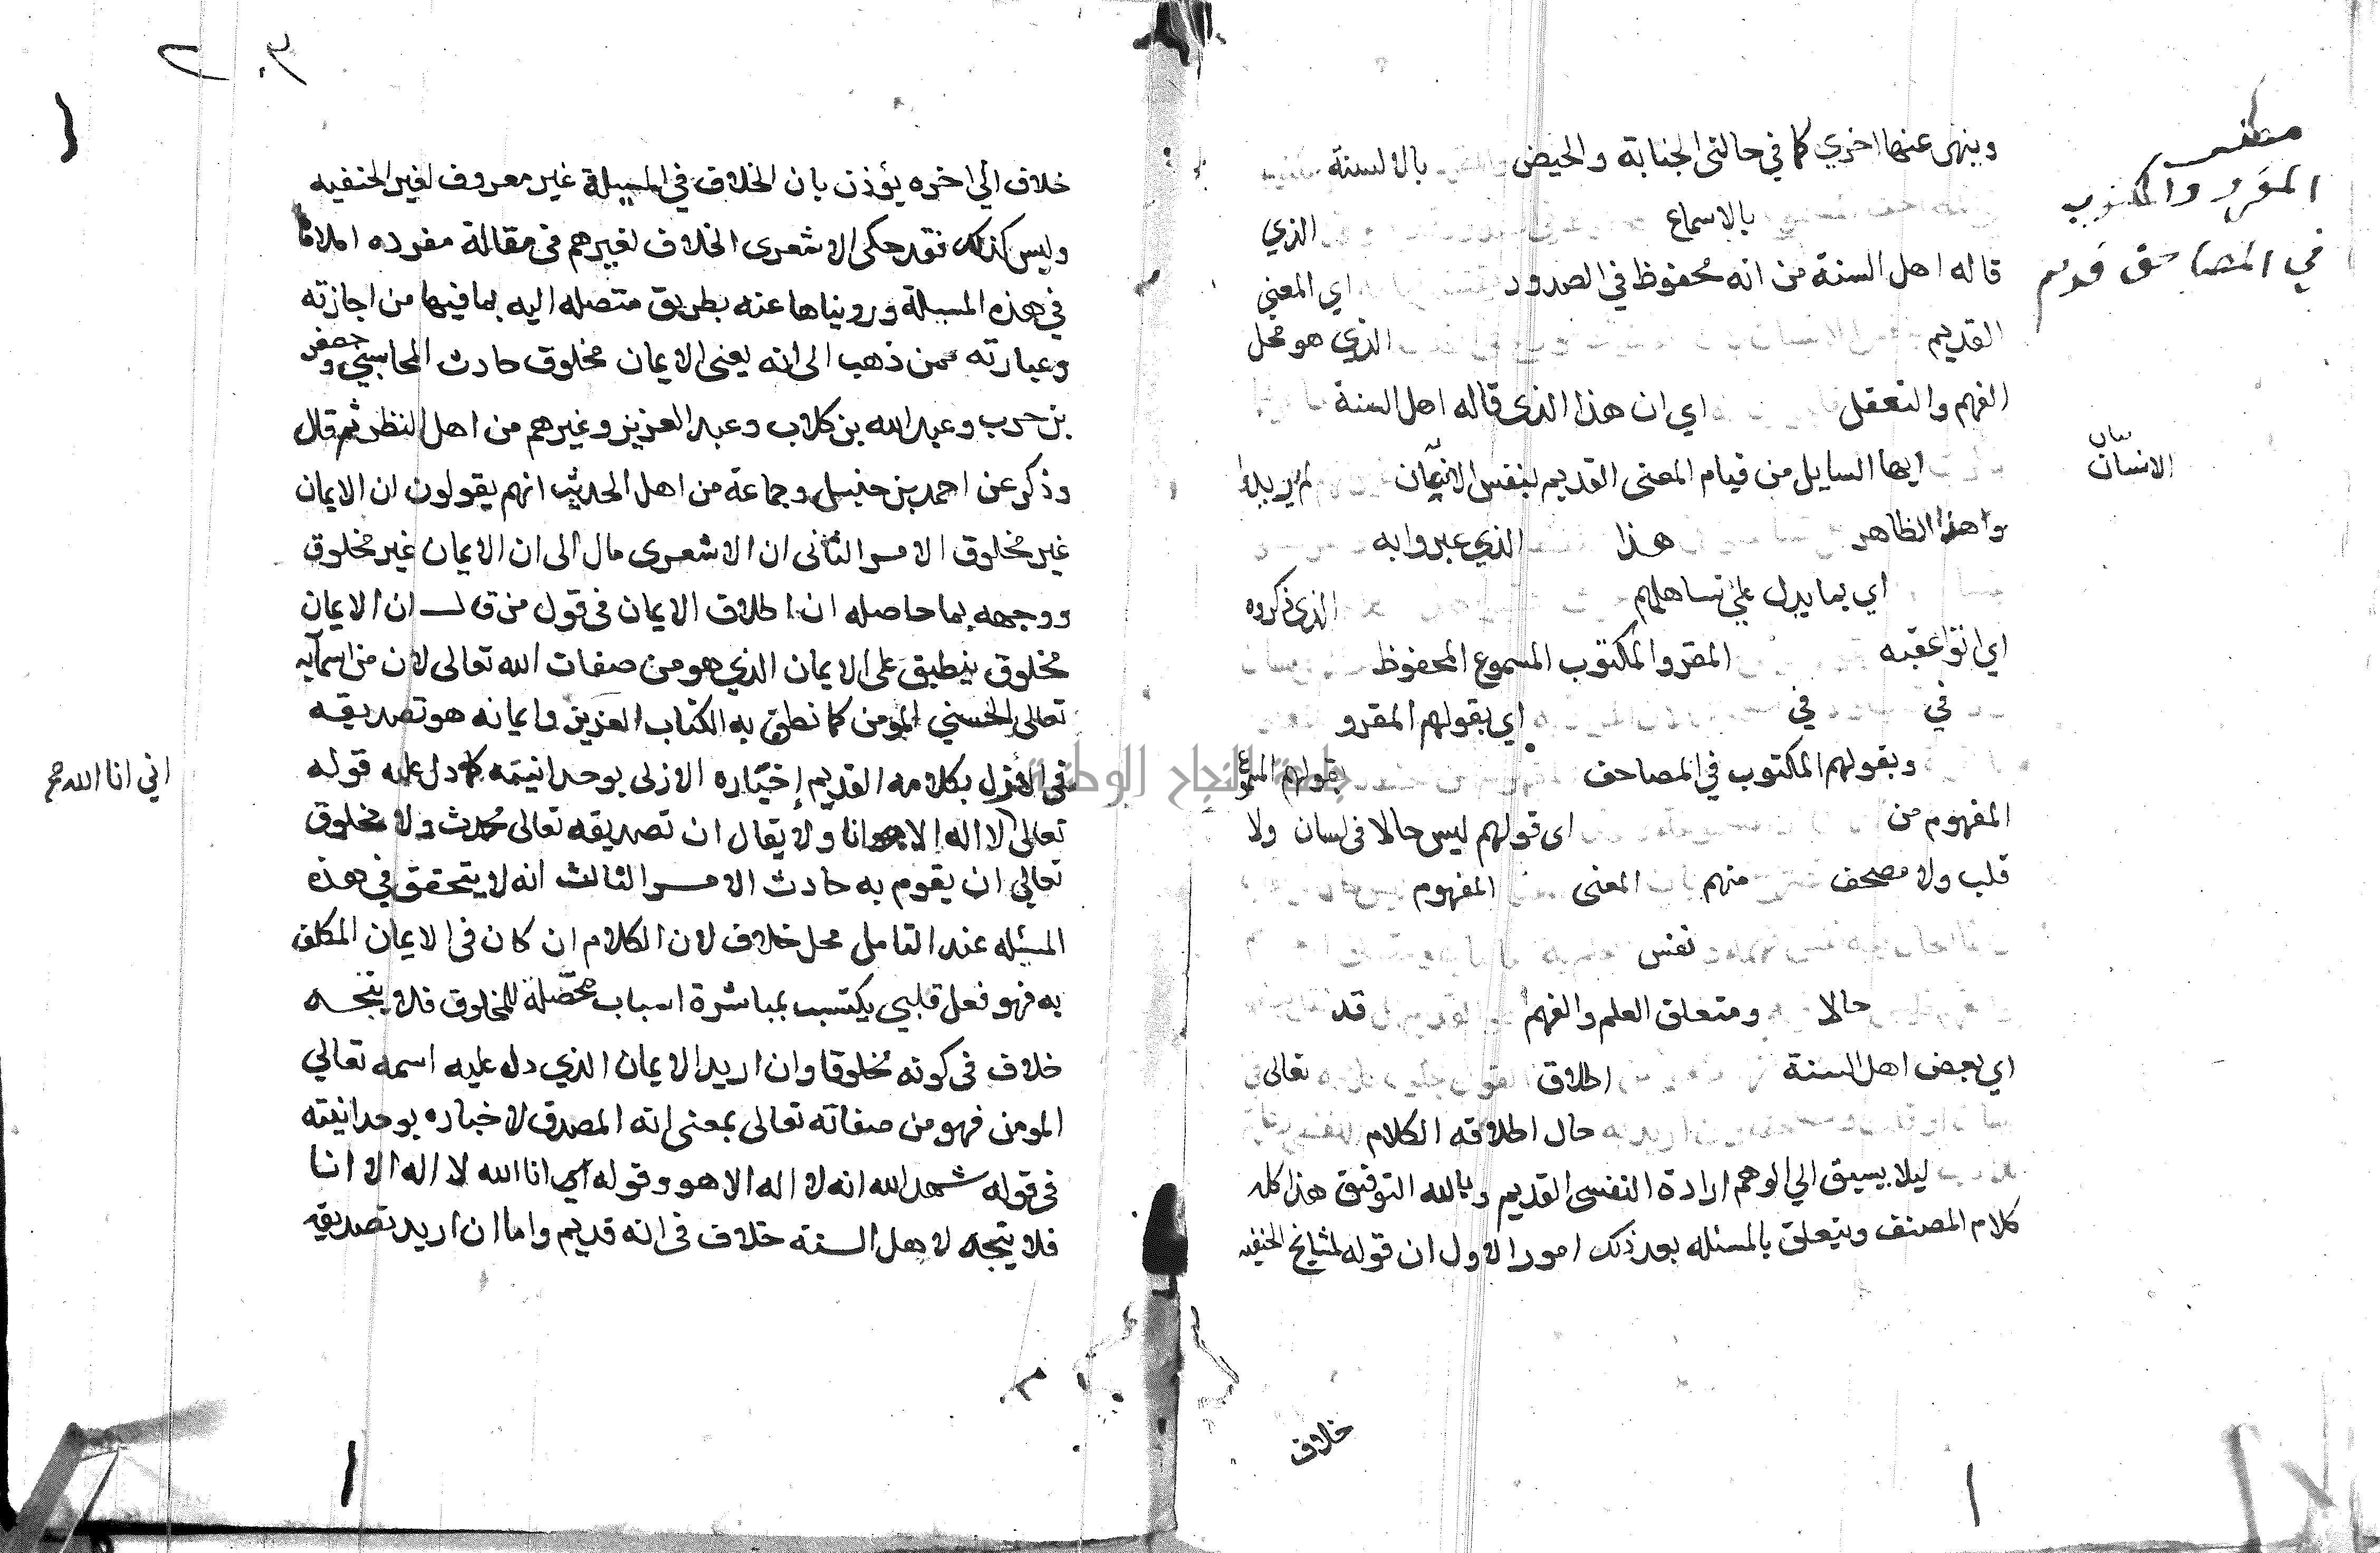 وينهى عنها اخري كما في حالتي الجنابة والحيض بالالسنة
بالاسماع الذي
قاله اهل السنة من انه محفوظ في الصدور اي المعني
القديم الذي هو محل
الفهم والتعقل اي ان هذا الذي قاله اهل السنة
ايها السايل من قيام المعنى القديم بنفس الانسان
الظاهر هذا الذي عبروا به
اي بما يدل على تساهلهم الذي ذكروه
المقرو المكتوب المسموع المحفوظ
في في اي بقولهم المقرو
وبقولهم المكتوب في المصاحف بقولهم المسموع
المفهوم من اى قولهم ليس حالا في لسان ولا
قلب ولا مصحف منهم المعنى المفهوم
نفس
حالا ومتعلق العلم والفهم قد
اي بعض اهل السنة اطلاق تعالى
حال اطلاقه الكلام
ليلا يسبق الي الوهم ارادة النفسي القديم وبالله التوفيق هذا كله
كلام المصنف ويتعلق بالمسئله بعد ذلك امور الاول ان قوله لمشايخ الحنفيه
خلاف
المقرو والمكتوب
في المصاحف قديم
بيان
الانسان
خلاف الي اخره يؤذن بان الخلاف في المسيلة غير معروف لغير الحنفيه
وليس كذلك فقد حكى الاشعرى الخلاف لغيرهم في مقالة مفرده املاها
في هذه المسيلة ورويناها عنه بطريق متصله اليه بما فيها من اجازته
وعبارته ممن ذهب الى انه يعنى الايمان مخلوق حادث المحاسبي وجعفر
بن حرب وعبد الله بن كلاب وعبد العزيز وغيرهم من اهل النظر ثم قال
وذكر عن احمد بن حنبل وجماعة من اهل الحديث انهم يقولون ان الايمان
غير مخلوق الامر الثاني ان الاشعرى مال الى ان الايمان غير مخلوق
ووجهه بما حاصله ان اطلاق الايمان في قول من قال ان الايمان
مخلوق ينطبق على الايمان الذي هو من صفات الله تعالى لان من اسمآيه
تعالى الحسني المومن كما نطق به الكتاب العزيز وايمانه هو تصديقه
في الأزل بكلامه القديم إخباره الازلى بوحدانيته كما دل عليه قوله
اني انا الله
تعالى لا اله الا انا ولا يقال ان تصديقه تعالى محدث ولا مخلوق
تعالي ان يقوم به حادث الامر الثالث انه لا يتحقق في هذه
المسئله عند التامل محل خلاف لان الكلام ان كان في الايمان المكلف
به فهو فعل قلبي يكتسب بمباشرة اسباب محصّلة للمخلوق فلا يتجه
خلاف في كونه مخلوقا وان اريد الايمان الذي دل عليه اسمه تعالي
المومن فهو من صفاته تعالى بمعنى انه المصدق لاخباره بوحدانيته
في قوله شهد الله انه لا اله الا هو وقوله اني انا الله لا اله الا انا
فلا يتجه لاهل السنة خلاف في انه قديم واما ان اريد تصديقه
جامعة النجاح الوطنية